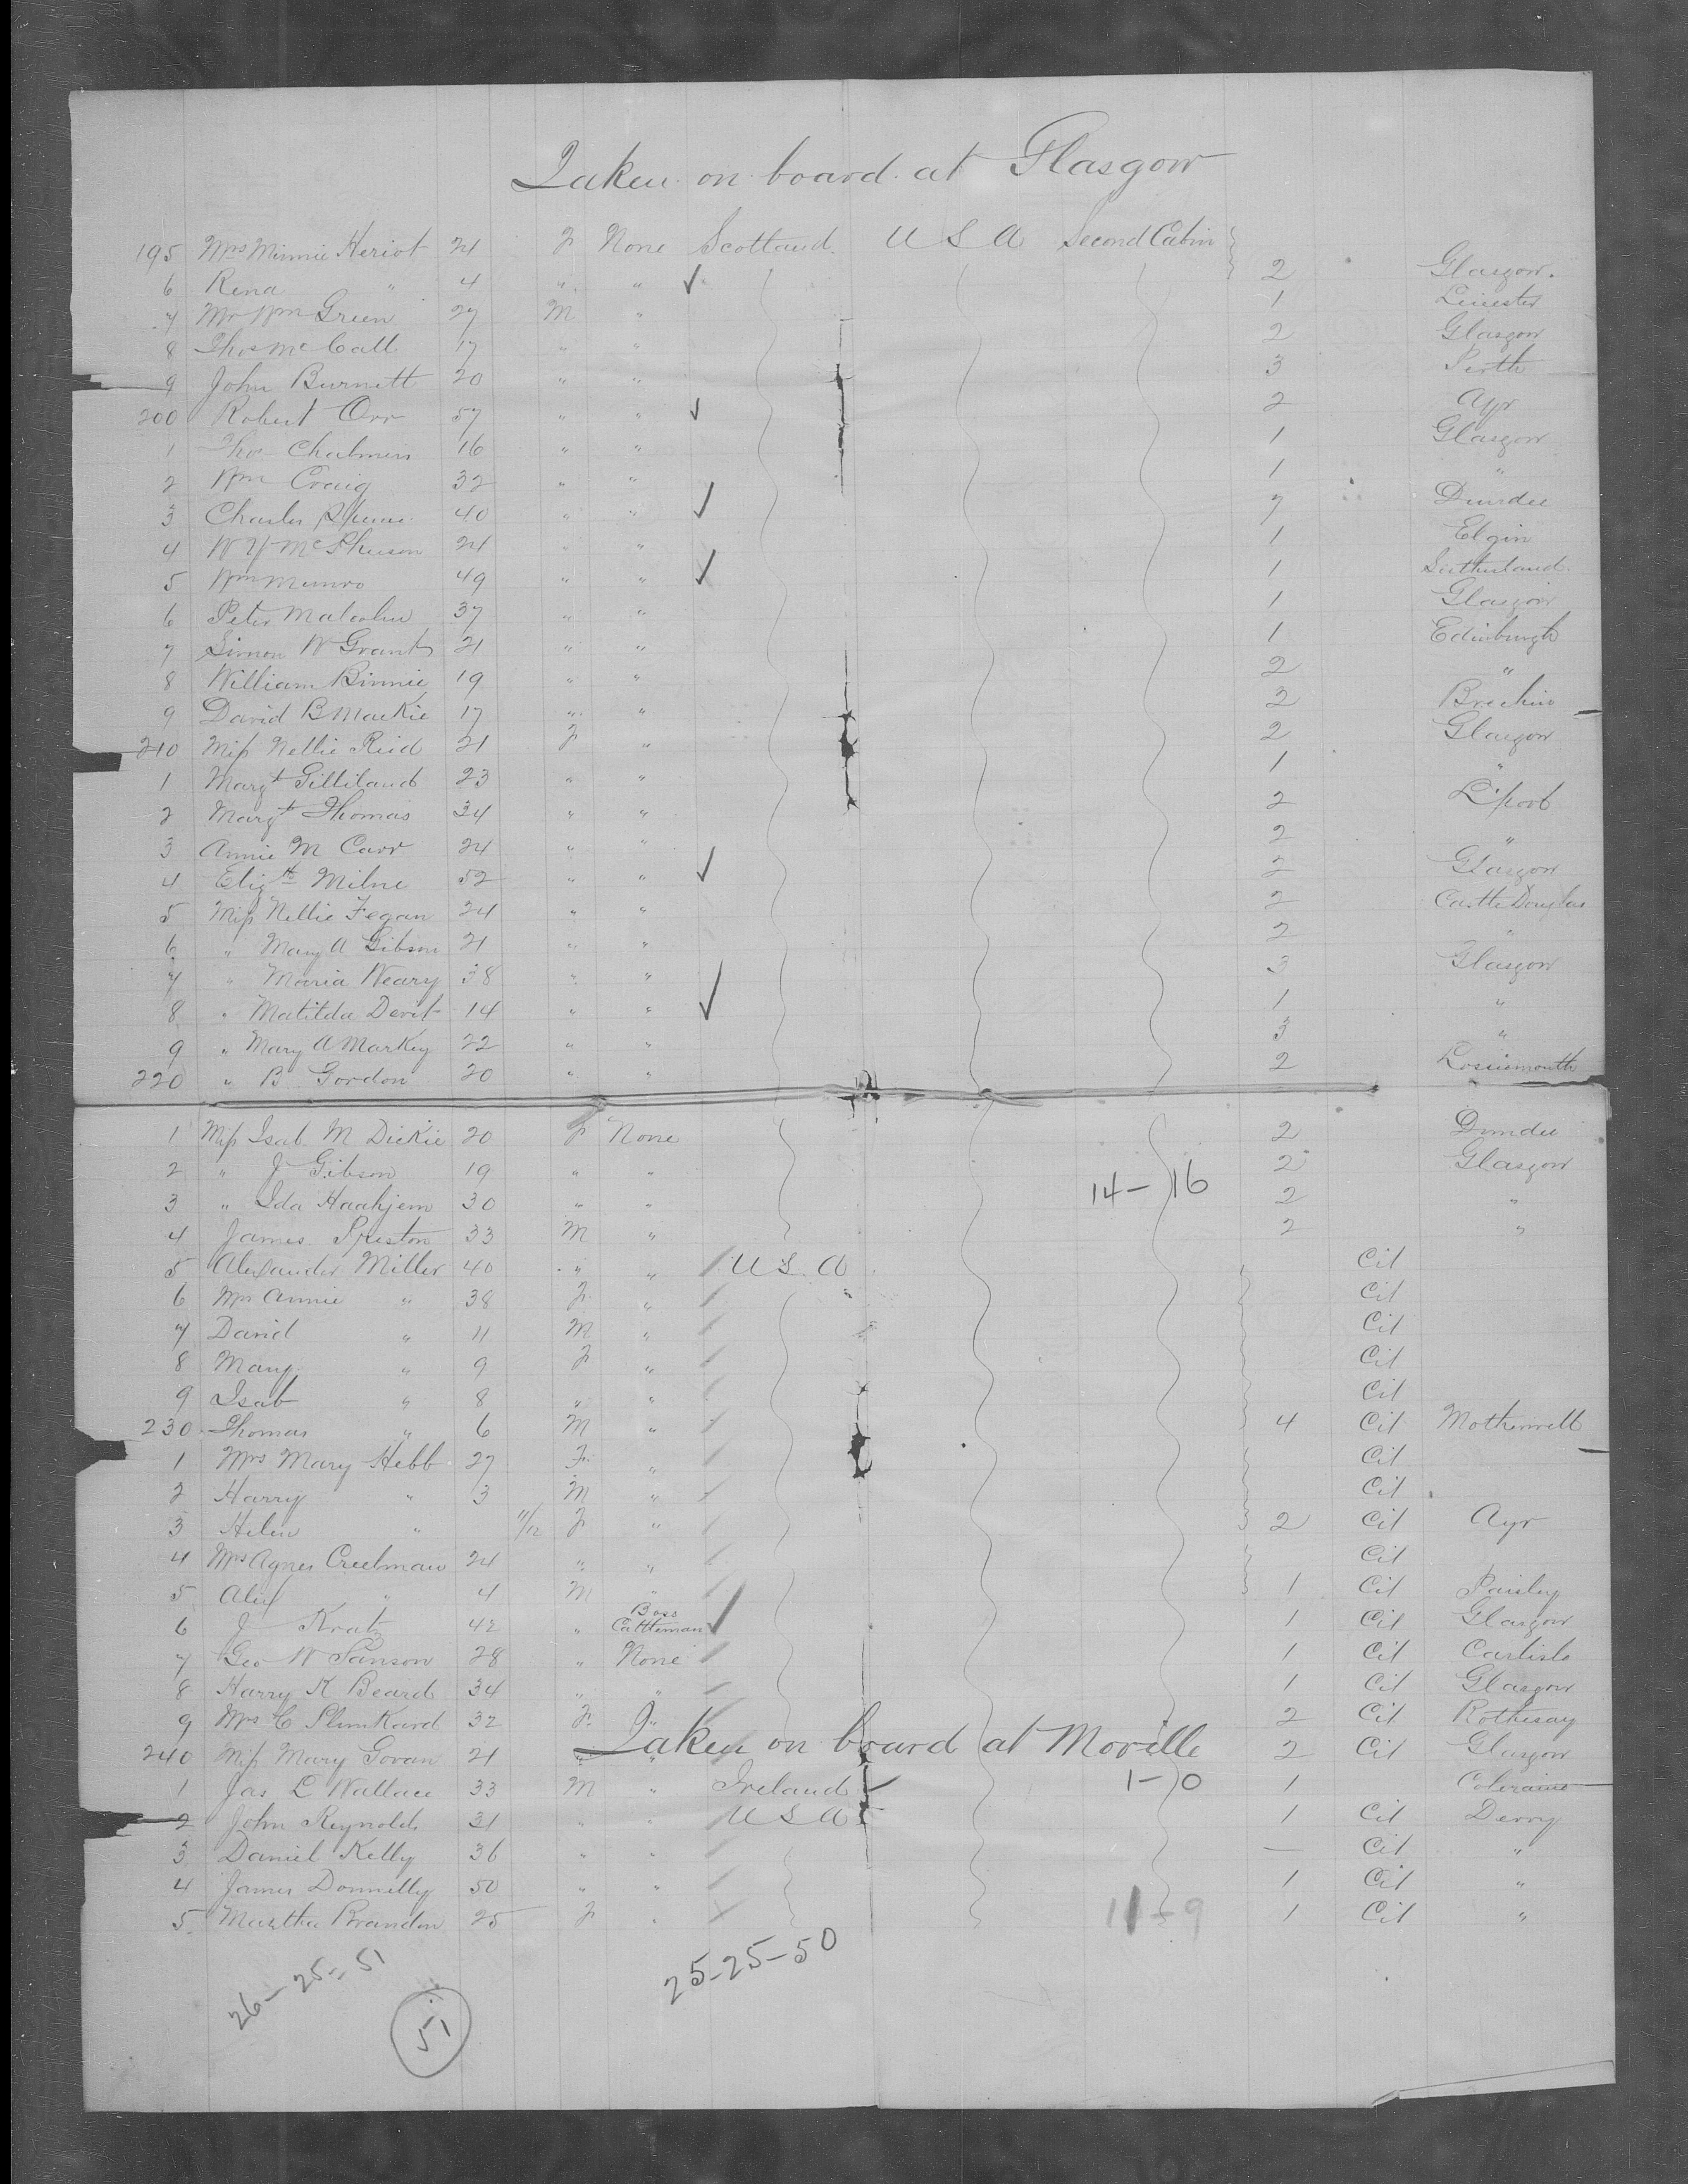 Taken on board at Glasgow
195 Mrs Minnie Heriot 24 F None Scotland U S A Second Cabin
6 Rena " 4 " " ✓ 2 Glasgow.
7 Mr Wm Green 27 M " 1 Leicester
8 Thos McCall 17 " " 2 Glasgow
9 John Burnett 20 " " 3 Perth
200 Robert Orr 57 " " ✓ 2 Ayr
1 Thos Chalmers 16 " " 1 Glasgow
2 Wm Craig 32 " " 1 "
3 Charles 40 " " ✓ 7 Dundee
4 W Y McPherson 24 " " 1 Elgin
5 Wm Munro 49 " " ✓ 1 Sutherland.
6 Peter Malcolm 37 " " 1 Glasgow
7 Simon W Grant 21 " " 1 Edinburgh
8 William Binnie 19 " " 2 "
9 David B Mackie 17 " " 2 Brechin
210 Miss Nellie Reid 21 F " 2 Glasgow
1 Margt Gilliland 23 " " 1 "
2 Margt Thomas 34 " " 2 L'pool
3 Annie M Carr 24 " " 2 "
4 Elizth Milne 52 " " ✓ 2 Glasgow
5 Miss Nellie Fegan 24 " " 2 Castle Douglas
6 " Mary A Gibson 21 " " 2 "
7 " Maria Neary 38 " " 3 Glasgow
8 " Matilda Devit 14 " " ✓ 1 "
9 " Mary A Markey 22 " " 3 "
220 " B Gordon 20 " " 2 Lossiemouth
1 Miss Isab. M Dickie 20 F None 2 Dundee
2 " J Gibson 19 " " 2 Glasgow
3 " Ida Haahjem 30 " " 14-16 2 "
4 James Preston 33 M " 2 "
5 Alexander Miller 40 " " U S A Cit
6 Mrs Annie " 38 F " " Cit
7 David " 11 M " Cit
8 Mary " 9 F " Cit
9 Isab " 8 " " Cit
230 Thomas " 6 M " 4 Cit Motherwell
1 Mrs Mary Hebb 27 F " Cit
2 Harry " 3 M " Cit
3 Helen " 11/12 F " 2 Cit Ayr
4 Mrs Agnes Creelman 24 " " Cit
5 Alex " 4 M " 1 Cit Paisley
6 J Kratz 42 " Boss Cattleman ✓ 1 Cit Glasgow
7 Geo W Sanson 28 " None 1 Cit Carlisle
8 Harry K Beard 34 " " 1 Cit Glasgow
9 Mrs C Slunkard 32 F " 2 Cit Rothesay
Taken on board at Moville
240 Miss Mary Govan 21 " " 2 Cit Glasgow
1 Jas L Wallace 33 M " Ireland 1-0 1 Coleraine
2 John Reynolds 31 " " U S A 1 Cit Derry
3 Daniel Kelly 36 " " — Cit "
4 James Donnelly 50 " " 1 Cit "
5 Martha Brandon 25 F " 11-9 1 Cit "
26-25-51
25-25-50
51